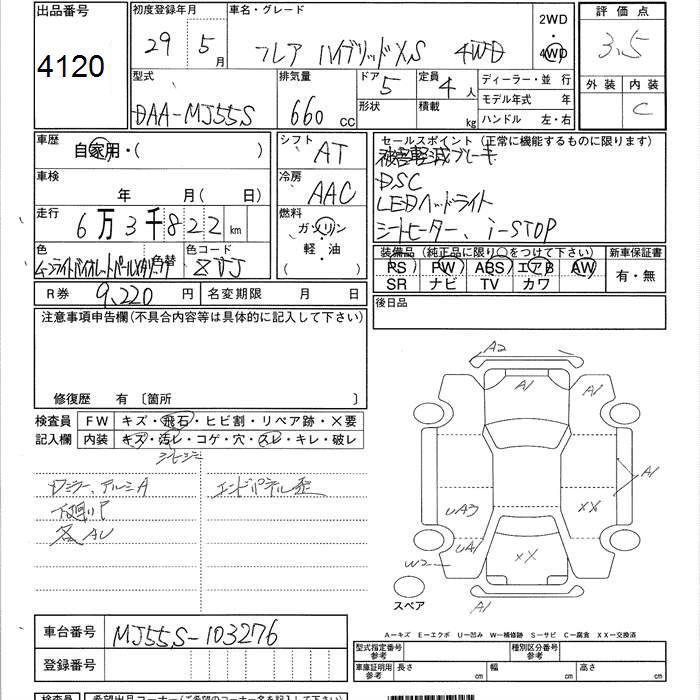 出品番号
4120
初度登録年月
29年5月
車名・グレード
フレア ハイブリッドXS 4WD
2WD
・
4WD
評価点
3.5
外装 内装
C
型式
DAA-MJ55S
排気量
660 cc
ドア 5
形状
定員 4人
積載 kg
ディーラー・並行
モデル年式 年
ハンドル 左・右
車歴
自家用・( )
車検
年 月( 日)
走行
6万3千822km
色
ムーンライトバイオレットパールメタリック
色替
色コード
ZVJ
シフト
AT
冷房
AAC
燃料
ガソリン
軽・油
( )
セールスポイント(正常に機能するものに限ります)
被害軽減ブレーキ
DSC
LEDヘッドライト
シートヒーター、i-STOP
装備品(純正品に限り○をつけて下さい)
PS PW ABS エアB AW
SR ナビ TV カワ
新車保証書
有・無
R券 9,220円
名変期限 月 日
後日品
注意事項申告欄(不具合内容等は具体的に記入して下さい)
修復歴 有〔箇所 〕
検査員
記入欄
FW キズ・飛石・ヒビ割・リペア跡・X要
内装 キズ・汚レ・コゲ・穴・スレ・キレ・破レ
ロミラー、アルミA
下廻りP
各AU
エンドパネル歪
A2
A1
A1
A1
UA3
XX
UA1
XX
W2
A1
スペア
A-キズ E-エクボ U-凹み W-補修跡 S-サビ C-腐食 XX-交換済
車台番号
MJ55S-103276
登録番号
型式指定番号
参考
種別区分番号
参考
車庫証明用
参考
長さ cm
幅 cm
高さ cm
検査員
希望出品コーナー(ご希望のコーナー名を記入下さい)